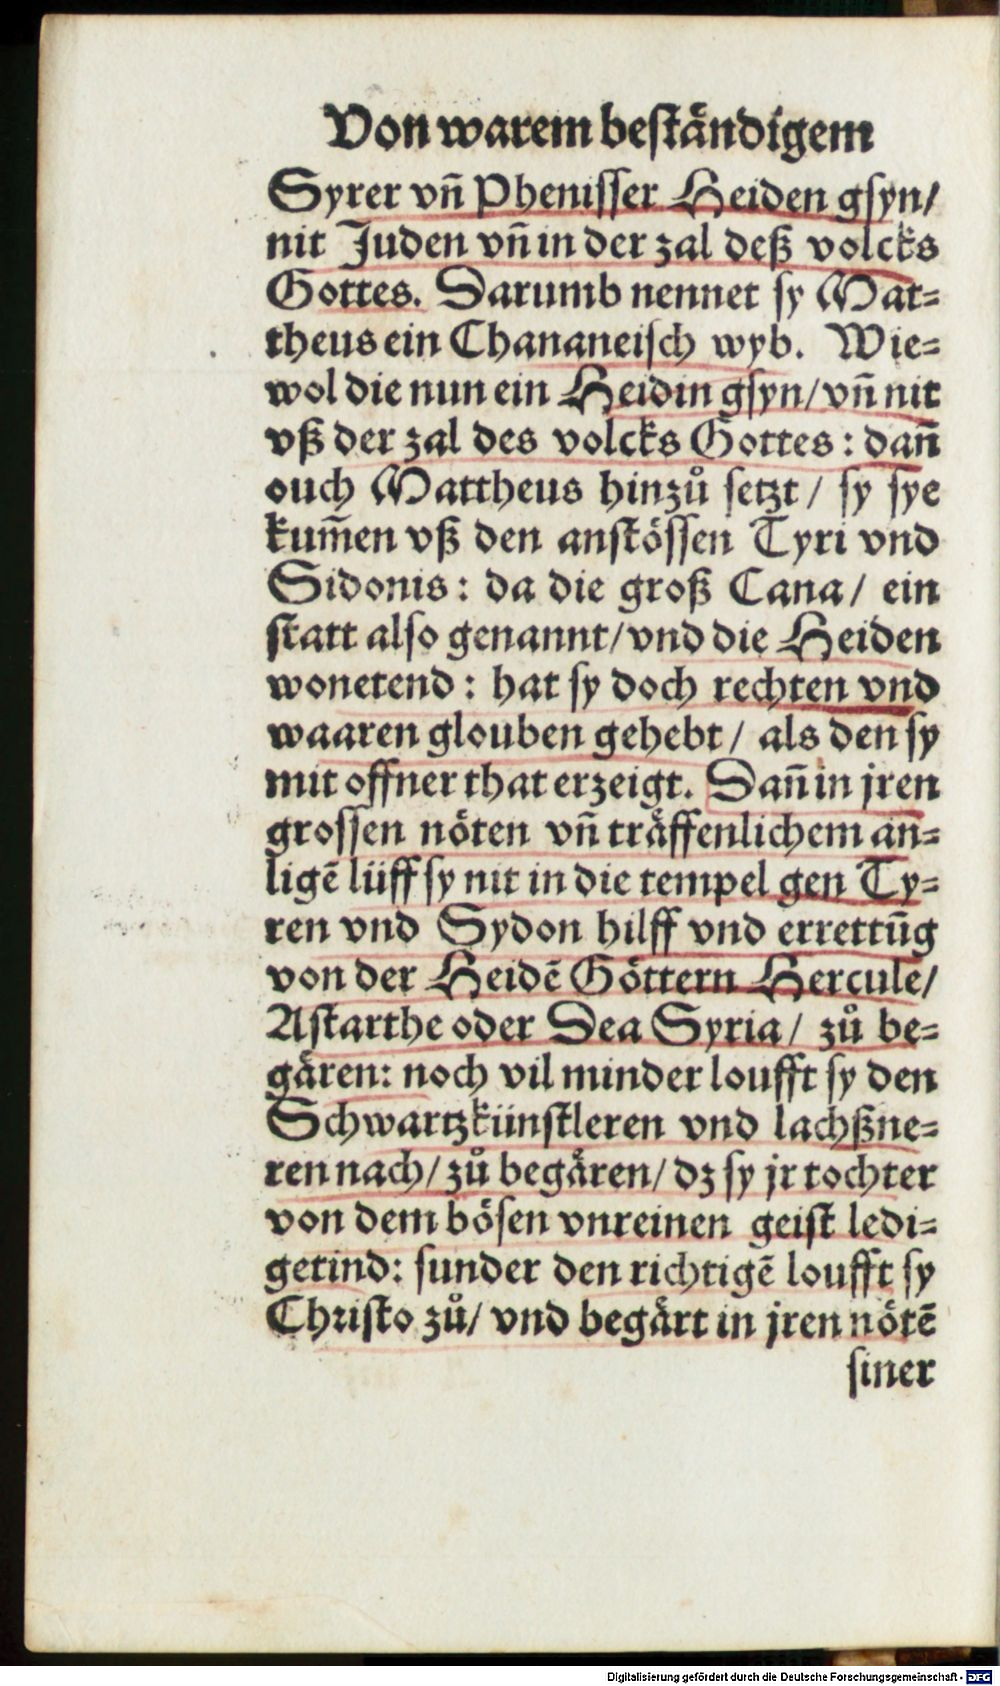 Von warem beständigem
Syrer vñ Phenisser Heiden gsyn/
nit Juden vñ in der zal deß volcks
Gottes. Darumb nennet sy Mat⸗
theus ein Chananeisch wyb. Wie⸗
wol die nun ein Heidin gsyn/ vñ nit
vß der zal des volcks Gottes: dañ
ouch Mattheus hinzů setzt / sy sye
kum̃en vß den anstössen Tyri vnd
Sidonis: da die groß Cana/ ein
statt also genannt/ vnd die Heiden
wonetend: hat sy doch rechten vnd
waaren glouben gehebt / als den sy
mit offner that erzeigt. Dañ in jren
grossen nöten vñ träffenlichem an⸗
ligẽ lüff sy nit in die tempel gen Ty⸗
ren vnd Sydon hilff vnd errettũg
von der Heidẽ Göttern Hercule/
Astarthe oder Dea Syria/ zů be⸗
gären: noch vil minder loufft sy den
Schwartzkünstleren vnd lachßne⸗
ren nach/ zů begären/ dz sy jr tochter
von dem bösen vnreinen geist ledi⸗
getind: sunder den richtigẽ loufft sy
Christo zů/ vnd begärt in jren nötẽ
siner
Digitalisierung gefördert durch die Deutsche Forschungsgemeinschaft - DFG